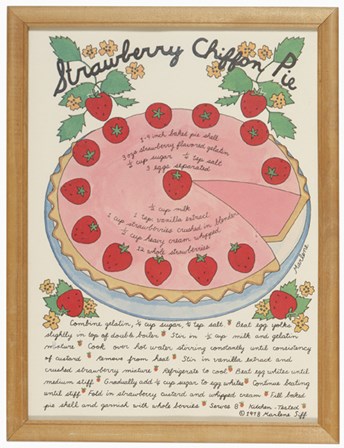 Strawberry Chiffon Pie
1-9 inch baked pie shell
3 oz strawberry flavored gelatin
½ cup sugar ¼ tsp salt
3 eggs separated
½ cup milk
1 tsp vanilla extract
1 cup strawberries crushed in blender
½ cup heavy cream whipped
12 whole strawberries
Marlene
Combine gelatin, ¼ cup sugar, ¼ tsp salt Beat egg yolks
slightly in top of double boiler Stir in ½ cup milk and gelatin
mixture Cook over hot water, stirring constantly until consistency
of custard Remove from heat Stir in vanilla extract and
crushed strawberry mixture Refrigerate to cool Beat egg whites until
medium stiff Gradually add ¼ cup sugar to egg white Continue beating
until stiff Fold in strawberry custard and whipped cream Fill baked
pie shell and garnish with whole berries Serves 8 Kitchen-Tested
© 1978 Marlene Siff